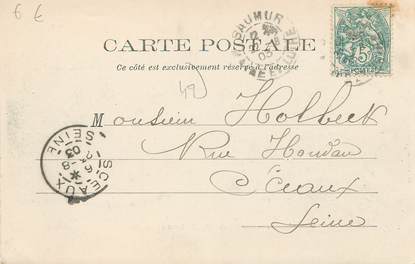 6 €
SAUMUR
CARTE POSTALE
Ce côté est exclusivement réservé à l'adresse
5
49
Monsieur Holbeck
Rue Houdan
Sceaux
Seine
SCEAUX
SEINE
03